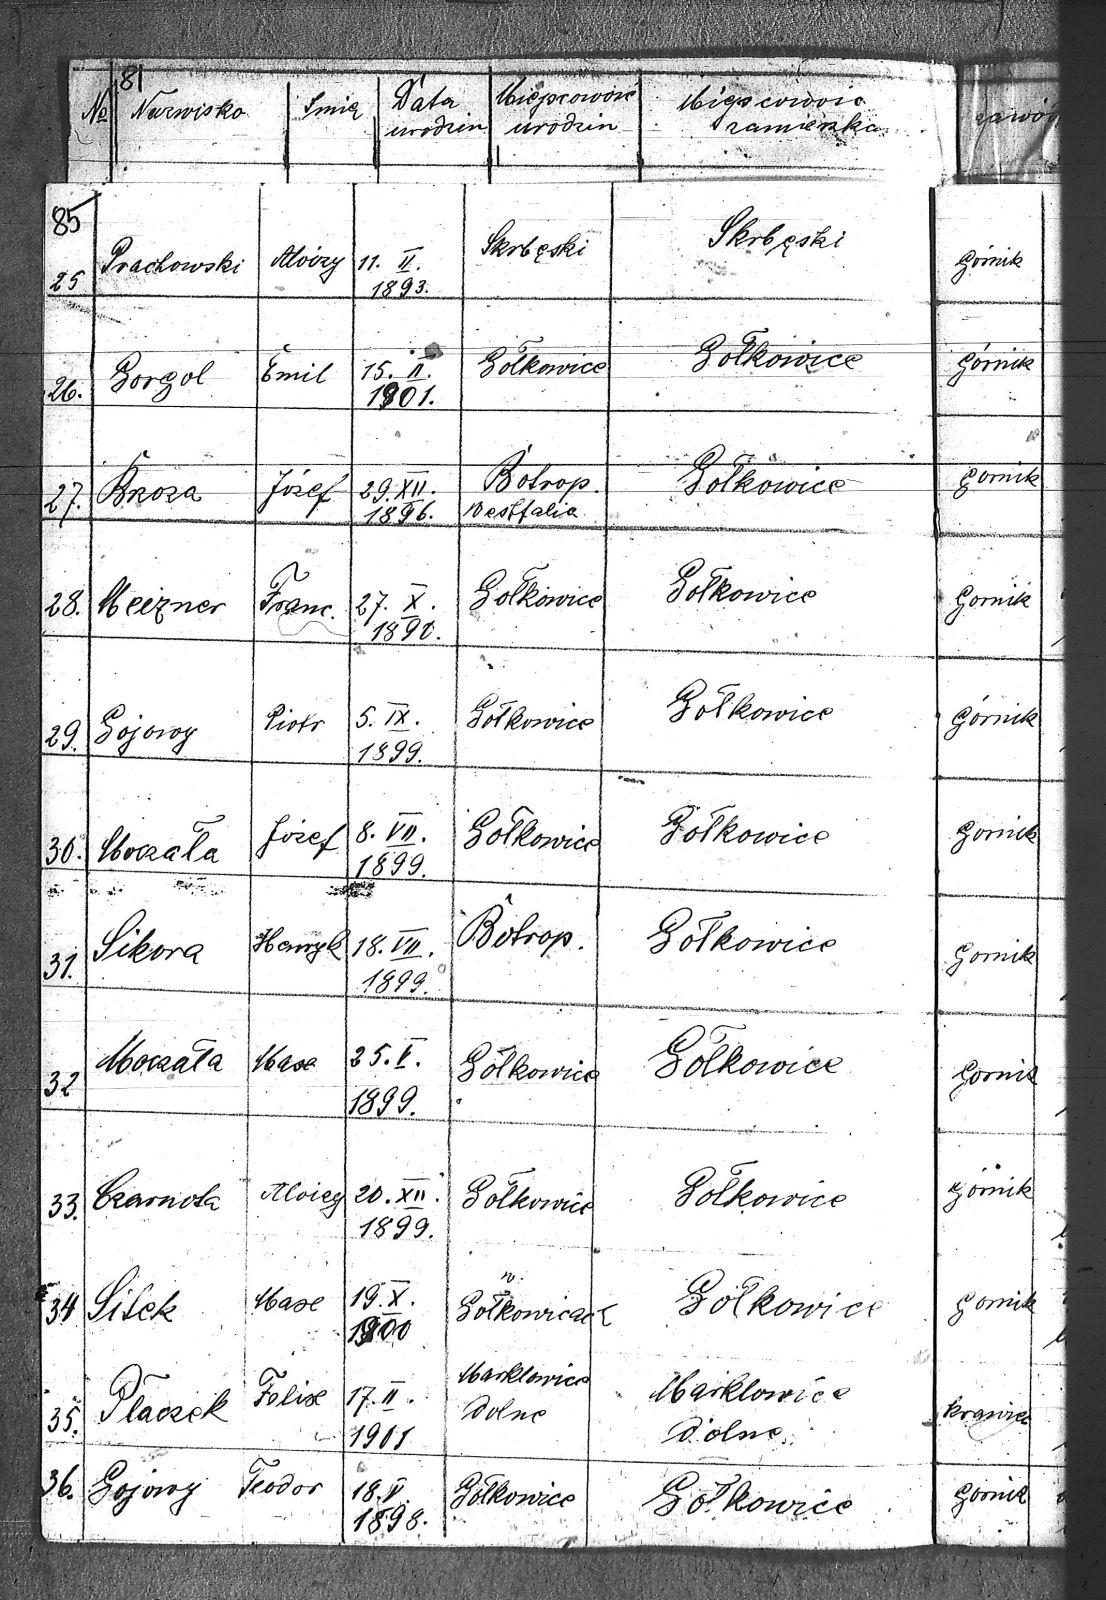 81
№ Nazwisko Imię Data urodzin Miejscowość urodzin Miejscowość zamieszka zawód
85
25 Prachowski Alojzy 11. II. 1893. Skrbęski Skrbęski Górnik
26. Gorgol Emil 15. II. 1901. Gołkowice Gołkowice Górnik
27. Brzoza Józef 29. XII. 1896. Botrop. Westfalia Gołkowice Gornik
28. Meizner Franc. 27. X. 1890. Gołkowice Gołkowice Gornik
29. Gojowy Piotr 5. IX. 1899. Gołkowice Gołkowice Górnik
30. Moczała Józef 8. VII. 1899. Gołkowice Gołkowice Gornik
31. Sikora Henryk 18. VII. 1899. Botrop. Gołkowice Gornik
32 Moczała Maxe 25. V. 1899. Gołkowice Gołkowice Gornik
33. Czarnota Aloizy 20. XII. 1899. Gołkowice Gołkowice Górnik
34 Sitek Maxe 19. X. 1900 w. Gołkowicach Gołkowice Gornik
35. Płaczek Felix 17. II. 1901 Marklowice Dolne Marklowice Dolne. krawiec
36. Gojowy Teodor 18. V. 1898. Gołkowice Gołkowice Gornik